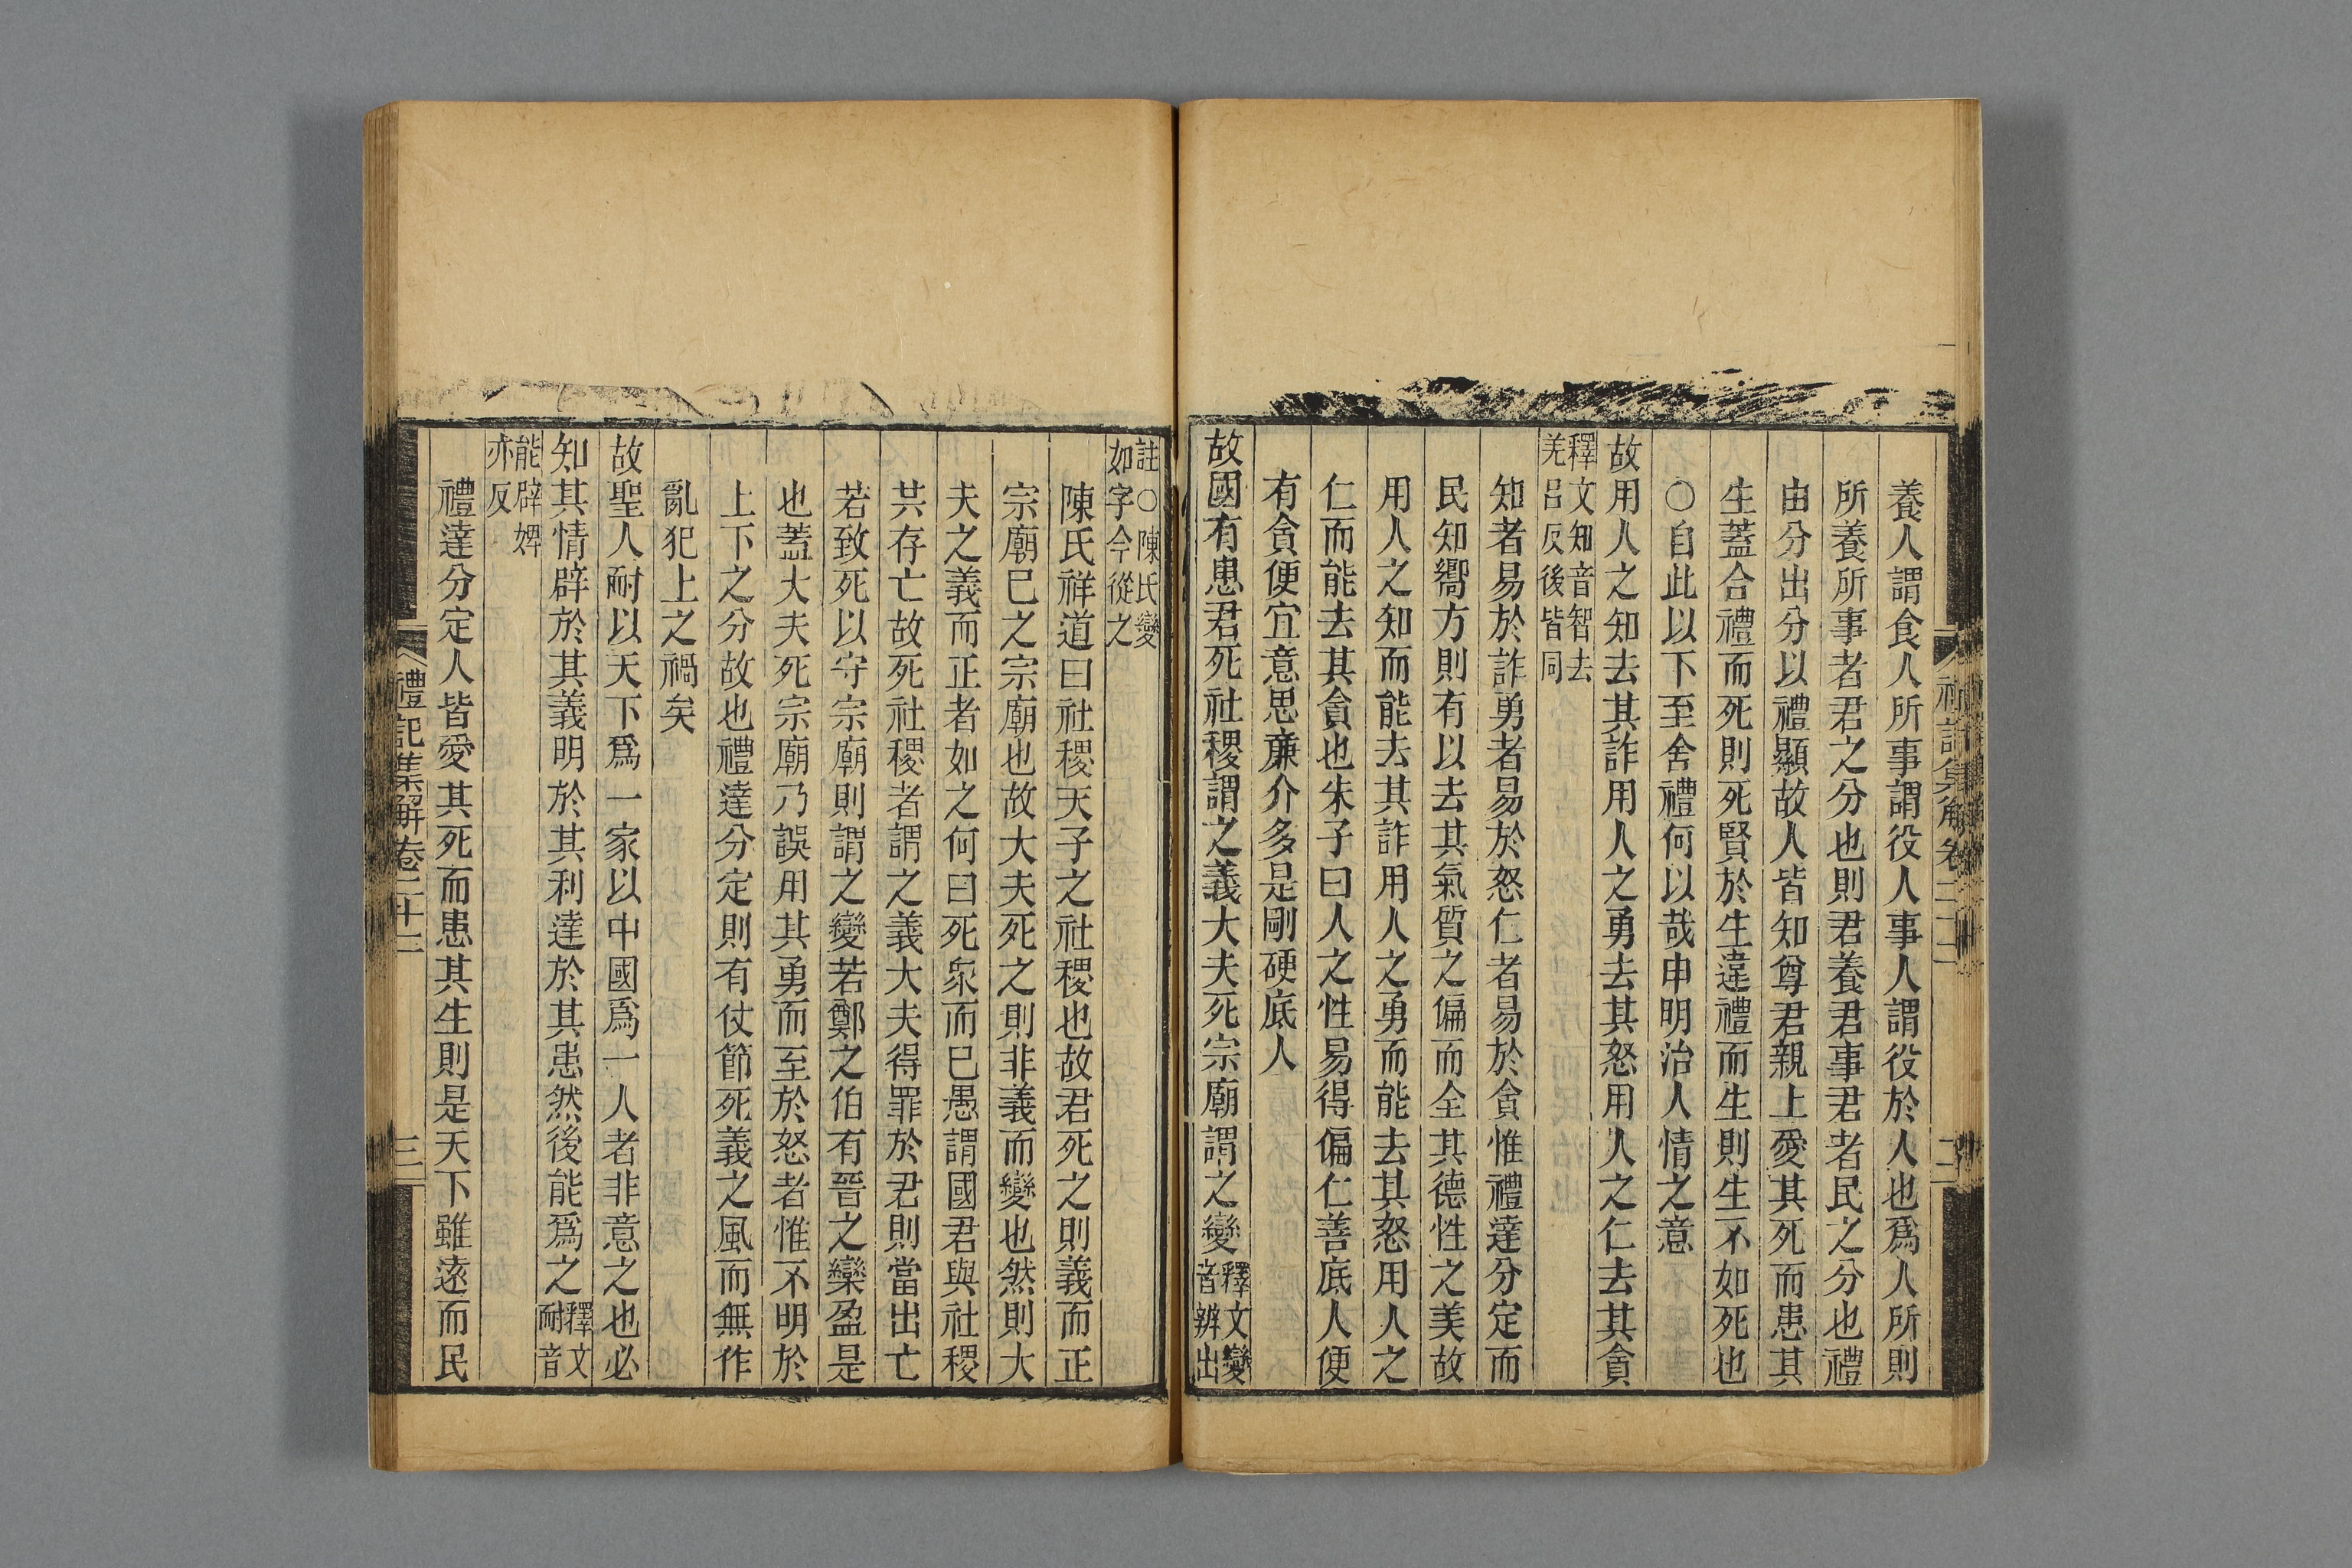 養人謂食人所事謂役人事人謂役於人也爲人所則
所養所事者君之分也則君養君事君者民之分也禮
由分出分以禮顯故人皆知尊君親上愛其死而患其
生蓋合禮而死則死賢於生違禮而生則生不如死也
○自此以下至舍禮何以哉申明治人情之意
故用人之知去其詐用人之勇去其怒用人之仁去其貪
釋文知音智去
羌呂反後皆同
知者易於詐勇者易於怒仁者易於貪惟禮達分定而
民知嚮方則有以去其氣質之偏而全其德性之美故
用人之知而能去其詐用人之勇而能去其怒用人之
仁而能去其貪也朱子曰人之性易得偏仁善底人便
有貪便宜意思亷介多是剛硬底人
故國有患君死社稷謂之義大夫死宗廟謂之變釋文變
音辨出
註○陳氏變
如字今從之
陳氏祥道曰社稷天子之社稷也故君死之則義而正
宗廟巳之宗廟也故大夫死之則非義而變也然則大
夫之義而正者如之何曰死衆而巳愚謂國君與社稷
共存亡故死社稷者謂之義大夫得罪於君則當出亡
若致死以守宗廟則謂之變若鄭之伯有晉之欒盈是
也蓋大夫死宗廟乃誤用其勇而至於怒者惟不明於
上下之分故也禮達分定則有仗節死義之風而無作
亂犯上之禍矣
故聖人耐以天下爲一家以中國爲一人者非意之也必
知其情辟於其義明於其利達於其患然後能爲之釋文
耐音
能辟婢
亦反
禮達分定人皆愛其死而患其生則是天下雖遠而民
禮記集解卷二十二
三